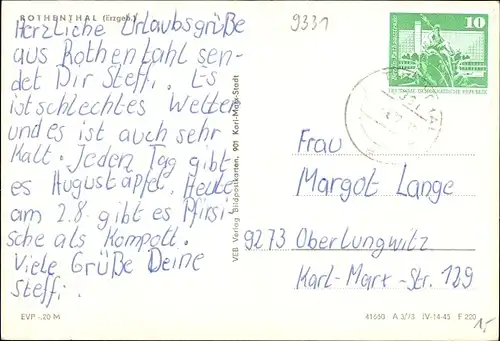 ROTHENTHAL (Erzgeb.)
Herzliche Urlaubsgrüße
aus Rothentahl sen-
det Dir Steffi. Es
ist schlechtes Wetter
und es ist auch sehr
kalt. Jeden Tag gibt
es Augustäpfel. Heute
am 2.8. gibt es Pfirsi-
sche als Kompott.
Viele Grüße Deine
Steffi.
EVP -.20 M
VEB Verlag Bildpostkarten, 901 Karl-Marx-Stadt
9331
10
DEUTSCHE DEMOKRATISCHE REPUBLIK
Frau
Margot Lange
9273 Oberlungwitz
Karl-Marx-Str. 129
41650 A 3/73 IV-14-45 F 220
15